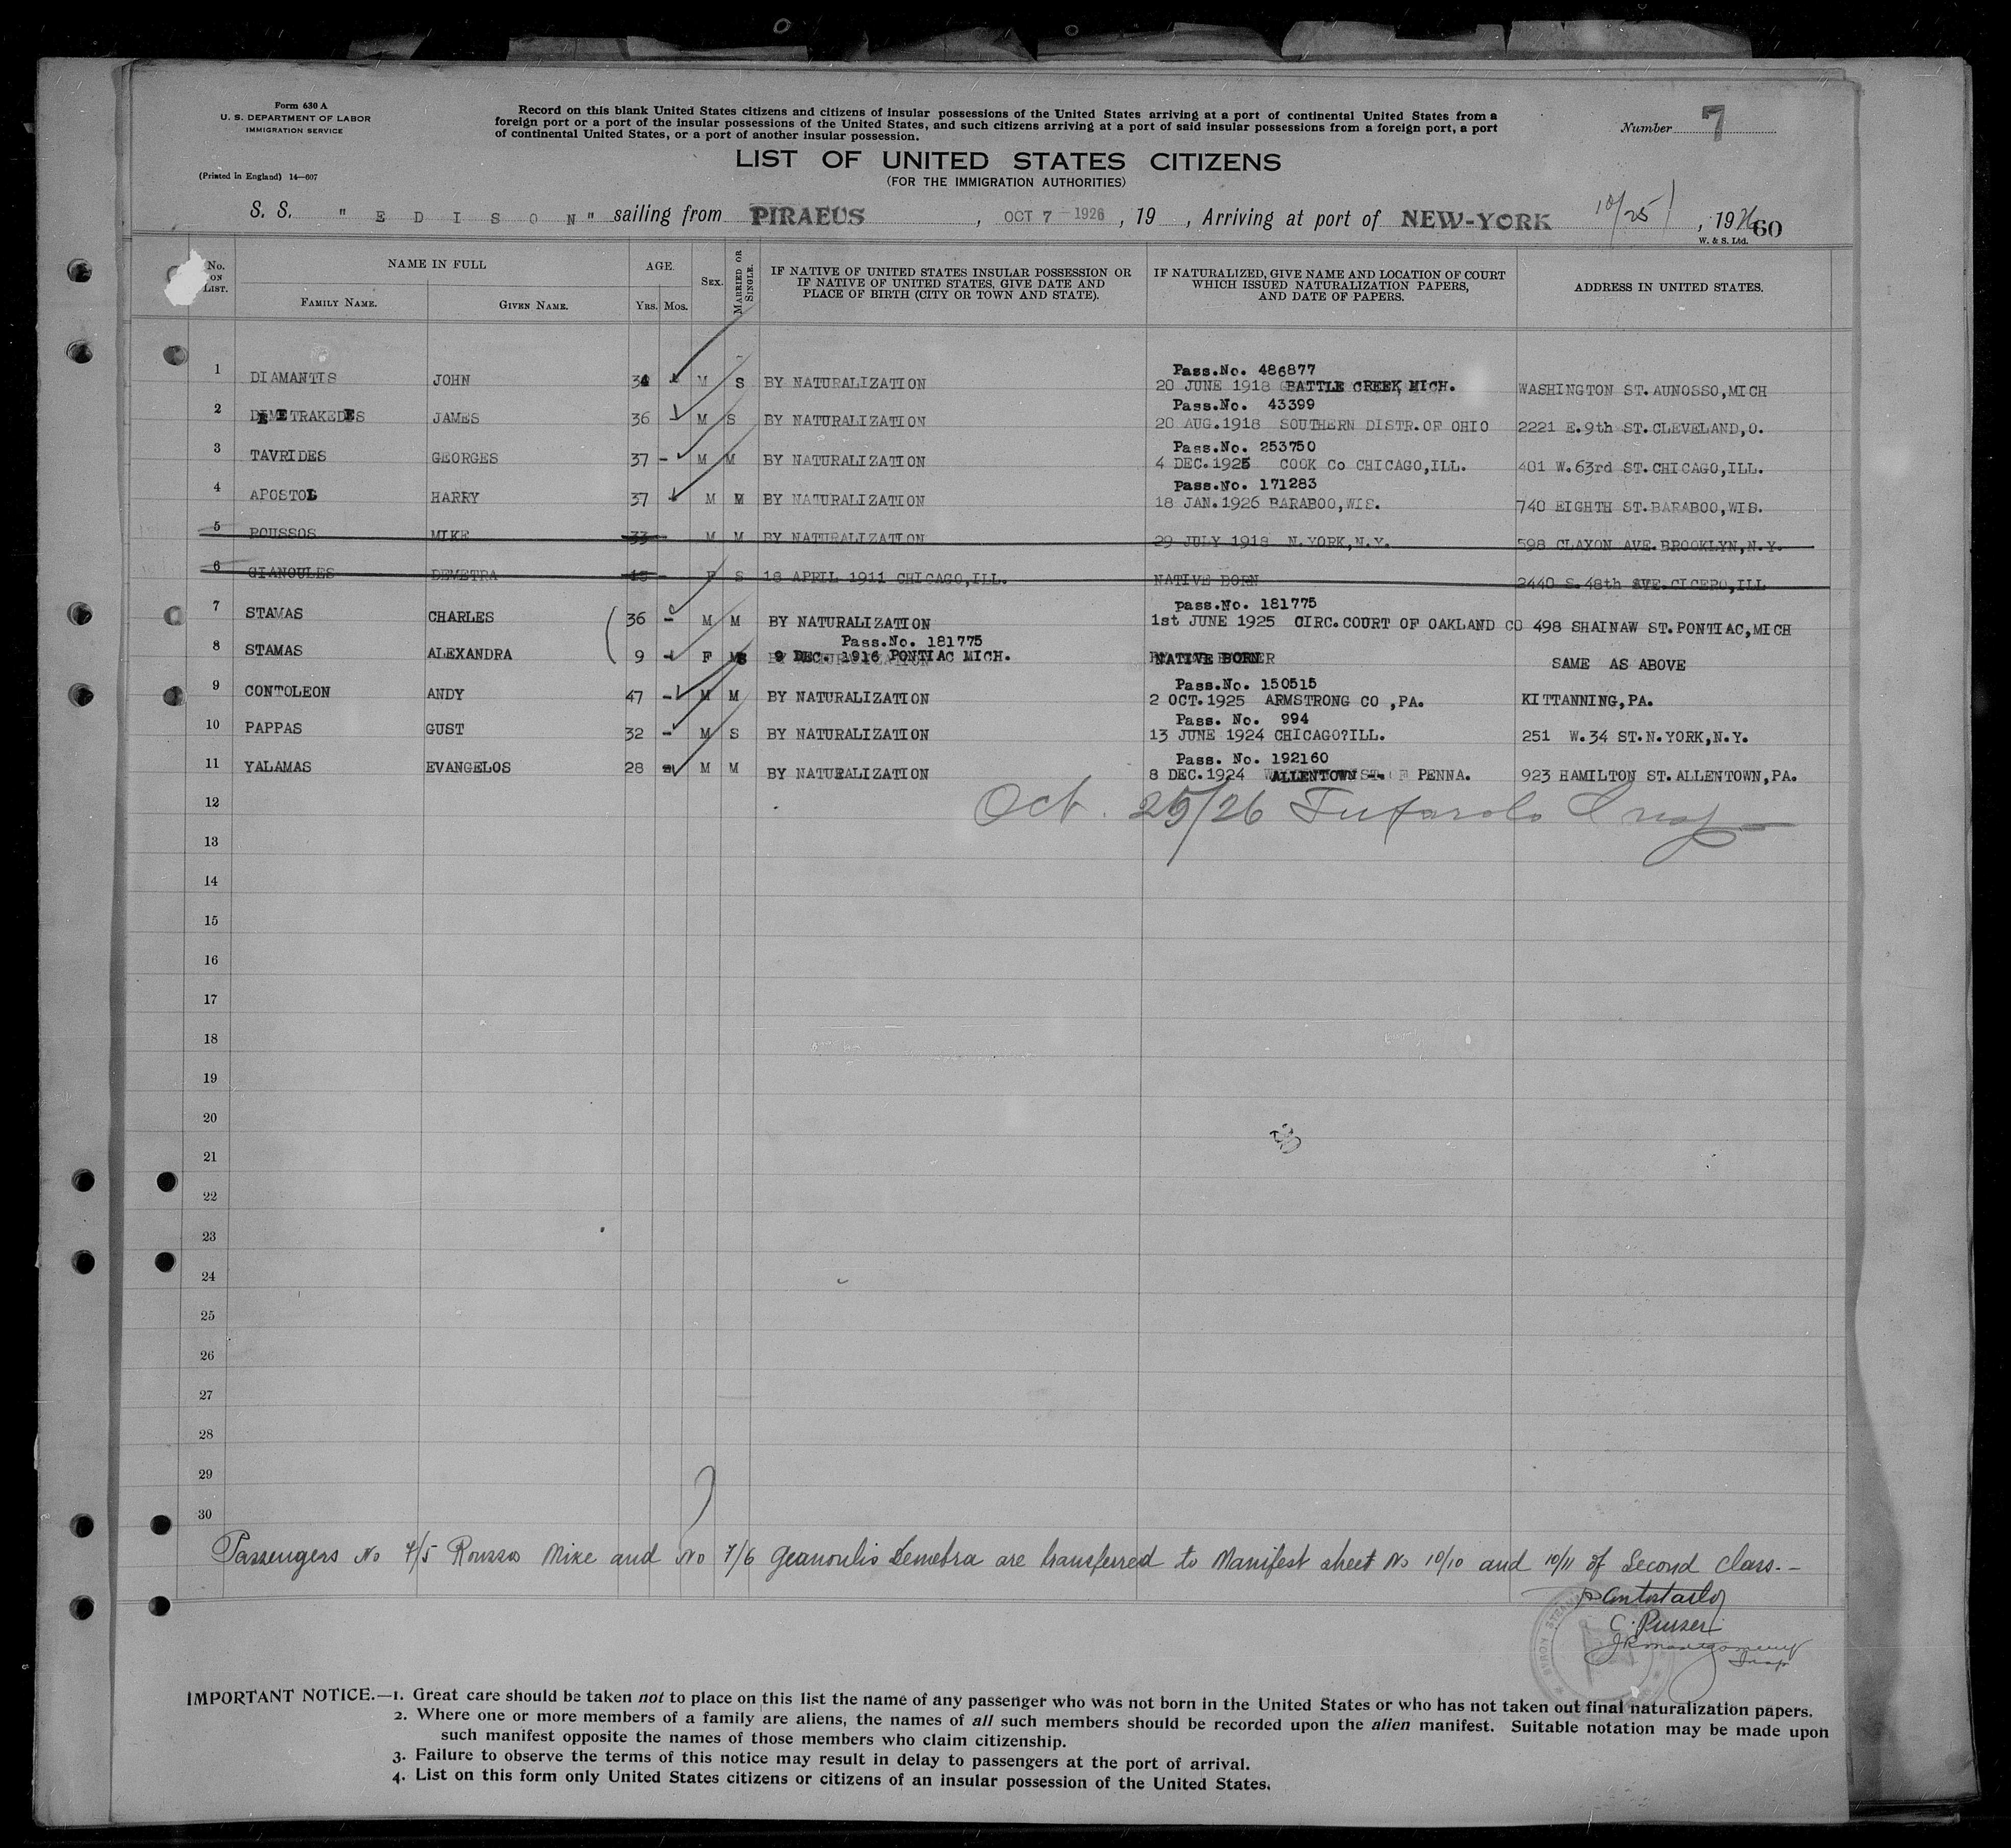 Form 630 A
U. S. DEPARTMENT OF LABOR
IMMIGRATION SERVICE
(Printed in England) 14—607
Record on this blank United States citizens and citizens of insular possessions of the United States arriving at a port of continental United States from a
foreign port or a port of the insular possessions of the United States, and such citizens arriving at a port of said insular possessions from a foreign port, a port
of continental United States, or a port of another insular possession.
Number 7
LIST OF UNITED STATES CITIZENS
(FOR THE IMMIGRATION AUTHORITIES)
S. S. "EDISON" sailing from PIRAEUS, OCT 7 1926, 19 , Arriving at port of NEW-YORK 10/25, 1926
60
W. & S. Ltd.
No. ON LIST.
NAME IN FULL
FAMILY NAME.
GIVEN NAME.
AGE.
YRS. MOS.
SEX.
MARRIED OR SINGLE.
IF NATIVE OF UNITED STATES INSULAR POSSESSION OR
IF NATIVE OF UNITED STATES, GIVE DATE AND
PLACE OF BIRTH (CITY OR TOWN AND STATE).
IF NATURALIZED, GIVE NAME AND LOCATION OF COURT
WHICH ISSUED NATURALIZATION PAPERS,
AND DATE OF PAPERS.
ADDRESS IN UNITED STATES.
Pass.No. 486877
1 DIAMANTIS JOHN 34 M S BY NATURALIZATION 20 JUNE 1918 BATTLE CREEK, MICH. WASHINGTON ST.AUNOSSO,MICH
Pass.No. 43399
2 DEMETRAKEDES JAMES 36 M S BY NATURALIZATION 20 AUG.1918 SOUTHERN DISTR.OF OHIO 2221 E.9th ST.CLEVELAND,O.
Pass.No. 253750
3 TAVRIDES GEORGES 37 - M M BY NATURALIZATION 4 DEC.1925 COOK Co CHICAGO,ILL. 401 W.63rd ST.CHICAGO,ILL.
Pass.No. 171283
4 APOSTOL HARRY 37 M M BY NATURALIZATION 18 JAN.1926 BARABOO,WIS. 740 EIGHTH ST.BARABOO,WIS.
5 ROUSSOS MIKE 33 M M BY NATURALIZATION 29 JULY 1918 N.YORK,N.Y. 598 CLAXON AVE.BROOKLYN,N.Y.
6 GIANOULES DEMETRA 15 - F S 18 APRIL 1911 CHICAGO,ILL. NATIVE BORN 2440 S.48th AVE.CICERO,ILL
pass.No. 181775
7 STAMAS CHARLES 36 - M M BY NATURALIZATION 1st JUNE 1925 CIRC.COURT OF OAKLAND CO 498 SHAINAW ST.PONTIAC,MICH
Pass.No. 181775
8 STAMAS ALEXANDRA 9 - F S 9 DEC. 1916 PONTIAC MICH. NATIVE BORN SAME AS ABOVE
Pass.No. 150515
9 CONTOLEON ANDY 47 - M M BY NATURALIZATION 2 OCT.1925 ARMSTRONG CO ,PA. KITTANNING,PA.
Pass. No. 994
10 PAPPAS GUST 32 - M S BY NATURALIZATION 13 JUNE 1924 CHICAGO?ILL. 251 W.34 ST.N.YORK,N.Y.
Pass. No. 192160
11 YALAMAS EVANGELOS 28 M M BY NATURALIZATION 8 DEC.1924 ALLENTOWN PENNA. 923 HAMILTON ST.ALLENTOWN,PA.
12
Oct. 25/26 Insp
13
14
15
16
17
18
19
20
21
22
23
24
25
26
27
28
29
30
Passengers No 7/5 Roussos Mike and No 7/6 Geanoulis Demetra are transferred to Manifest sheet No 10/10 and 10/11 of Second Class.-
C. Purser
J R Montgomery
Insp
IMPORTANT NOTICE.—1. Great care should be taken not to place on this list the name of any passenger who was not born in the United States or who has not taken out final naturalization papers.
2. Where one or more members of a family are aliens, the names of all such members should be recorded upon the alien manifest. Suitable notation may be made upon
such manifest opposite the names of those members who claim citizenship.
3. Failure to observe the terms of this notice may result in delay to passengers at the port of arrival.
4. List on this form only United States citizens or citizens of an insular possession of the United States.